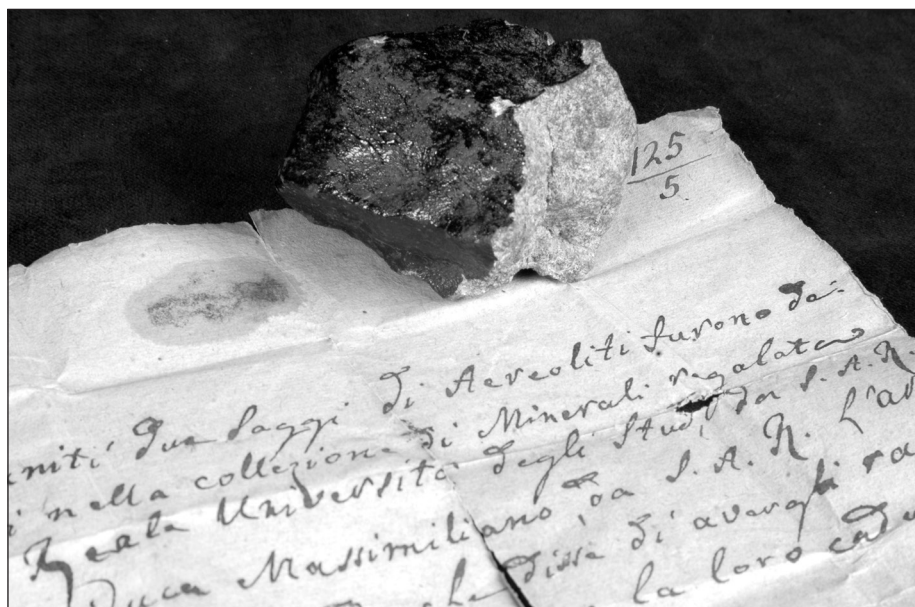 125
5
uniti due Saggi di Aereoliti furono da:
i nella collezione di Minerali regalata
Reale Università degli Studj da S. A. R.
Duca Massimiliano, da S. A. R. L'ar
che disse di averli ra
la loro cade